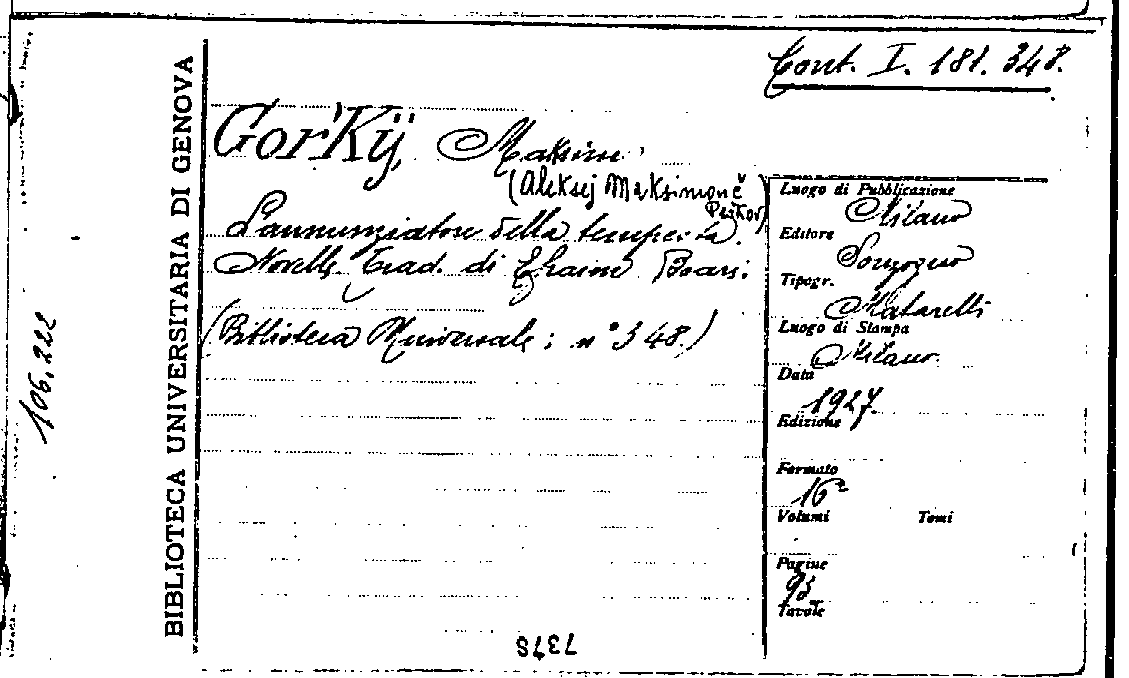 Cont. I. 181. 348.
BIBLIOTECA UNIVERSITARIA DI GENOVA
106.222
Gor'Kij, Maksim
(Aleksej Maksimovič
Peškov)
L'annunziatore della tempesta.
Novelle. Trad. di Efraim Boari.
(Biblioteca Universale; n° 348.)
Luogo di Pubblicazione
Milano
Editore
Sonzogno
Tipogr.
Matarelli
Luogo di Stampa
Milano
Data
1927.
Edizione
Formato
16°
Volumi Tomi
Pagine
93
Tavole
7378